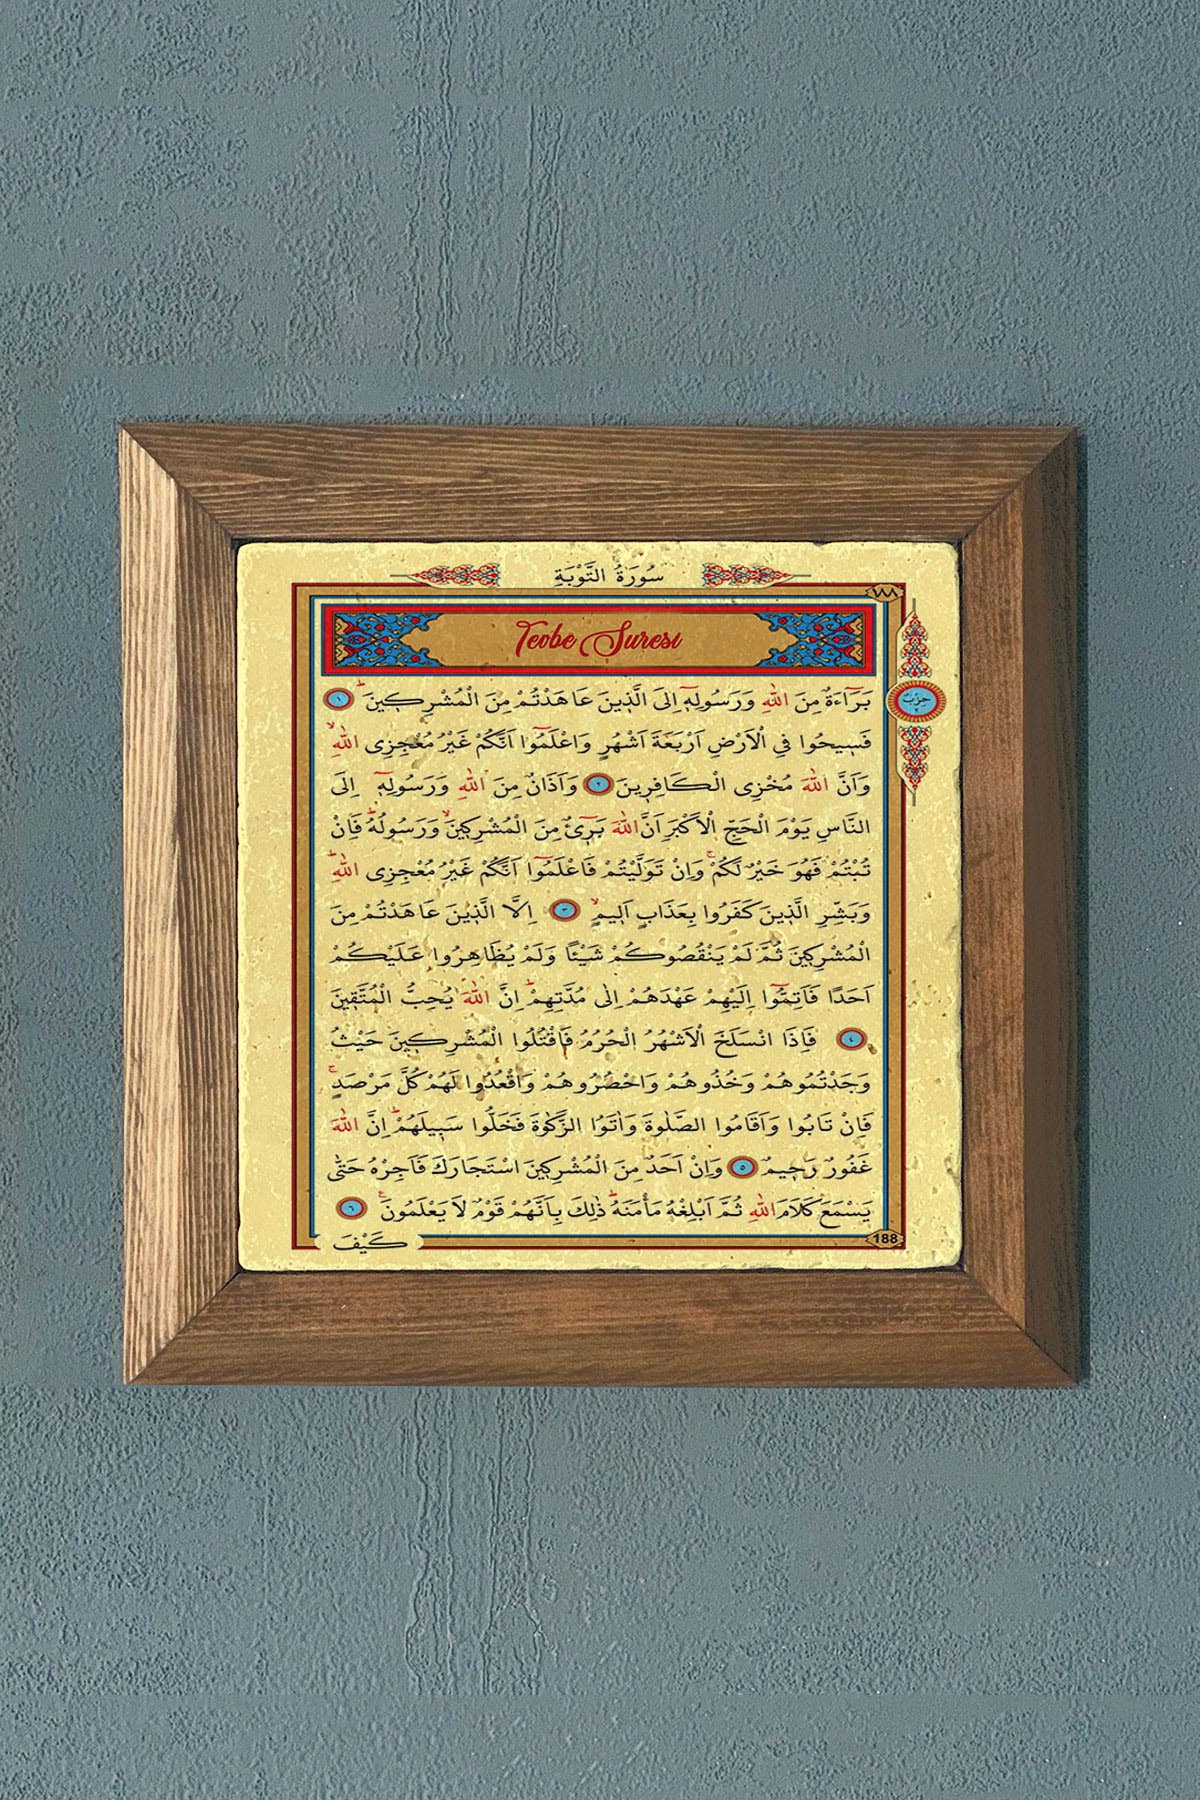 سُورَةُ التَّوْبَةِ
١٨٨
Tevbe Suresi
حِزْبْ
٢
بَرَٓاءَةٌ مِنَ اللّٰهِ وَرَسُولِه۪ٓ اِلَى الَّذ۪ينَ عَاهَدْتُمْ مِنَ الْمُشْرِك۪ينَۜ ١
فَس۪يحُوا فِي الْاَرْضِ اَرْبَعَةَ اَشْهُرٍ وَاعْلَمُٓوا اَنَّكُمْ غَيْرُ مُعْجِزِي اللّٰهِۙ
وَاَنَّ اللّٰهَ مُخْزِي الْكَافِر۪ينَ ٢ وَاَذَانٌ مِنَ اللّٰهِ وَرَسُولِه۪ٓ اِلَى
النَّاسِ يَوْمَ الْحَجِّ الْاَكْبَرِ اَنَّ اللّٰهَ بَر۪ٓيءٌ مِنَ الْمُشْرِك۪ينَۙ وَرَسُولُهُۜ فَاِنْ
تُبْتُمْ فَهُوَ خَيْرٌ لَكُمْۚ وَاِنْ تَوَلَّيْتُمْ فَاعْلَمُٓوا اَنَّكُمْ غَيْرُ مُعْجِزِي اللّٰهِۜ
وَبَشِّرِ الَّذ۪ينَ كَفَرُوا بِعَذَابٍ اَل۪يمٍۙ ٣ اِلَّا الَّذ۪ينَ عَاهَدْتُمْ مِنَ
الْمُشْرِك۪ينَ ثُمَّ لَمْ يَنْقُصُوكُمْ شَيْـًٔا وَلَمْ يُظَاهِرُوا عَلَيْكُمْ
اَحَدًا فَاَتِمُّٓوا اِلَيْهِمْ عَهْدَهُمْ اِلٰى مُدَّتِهِمْۜ اِنَّ اللّٰهَ يُحِبُّ الْمُتَّق۪ينَ
٤ فَاِذَا انْسَلَخَ الْاَشْهُرُ الْحُرُمُ فَاقْتُلُوا الْمُشْرِك۪ينَ حَيْثُ
وَجَدْتُمُوهُمْ وَخُذُوهُمْ وَاحْصُرُوهُمْ وَاقْعُدُوا لَهُمْ كُلَّ مَرْصَدٍۚ
فَاِنْ تَابُوا وَاَقَامُوا الصَّلٰوةَ وَاٰتَوُا الزَّكٰوةَ فَخَلُّوا سَب۪يلَهُمْۜ اِنَّ اللّٰهَ
غَفُورٌ رَح۪يمٌ ٥ وَاِنْ اَحَدٌ مِنَ الْمُشْرِك۪ينَ اسْتَجَارَكَ فَاَجِرْهُ حَتّٰى
يَسْمَعَ كَلَامَ اللّٰهِ ثُمَّ اَبْلِغْهُ مَأْمَنَهُۜ ذٰلِكَ بِاَنَّهُمْ قَوْمٌ لَا يَعْلَمُونَ۟ ٦
188
كَيْفَ